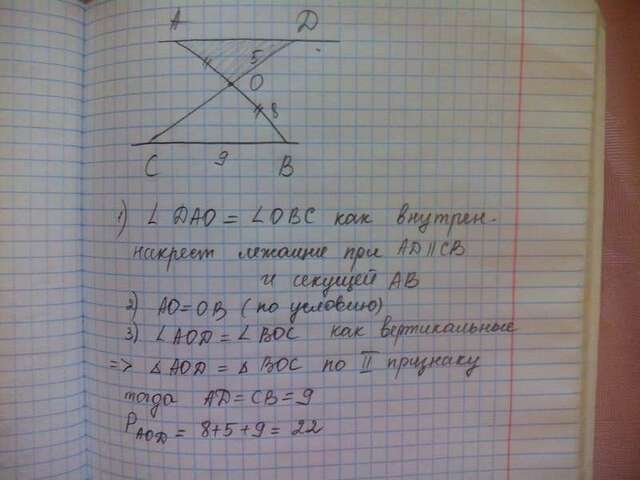 A D
5
O
8
C 9 B
1) ∠ DAO = ∠ OBC как внутрен-
накрест лежащие при AD||CB
и секущей AB
2) AO=OB (по условию)
3) ∠AOD = ∠ BOC как вертикальные
=> △ AOD = △ BOC по II признаку
тогда AD=CB=9
P AOD = 8+5+9=22